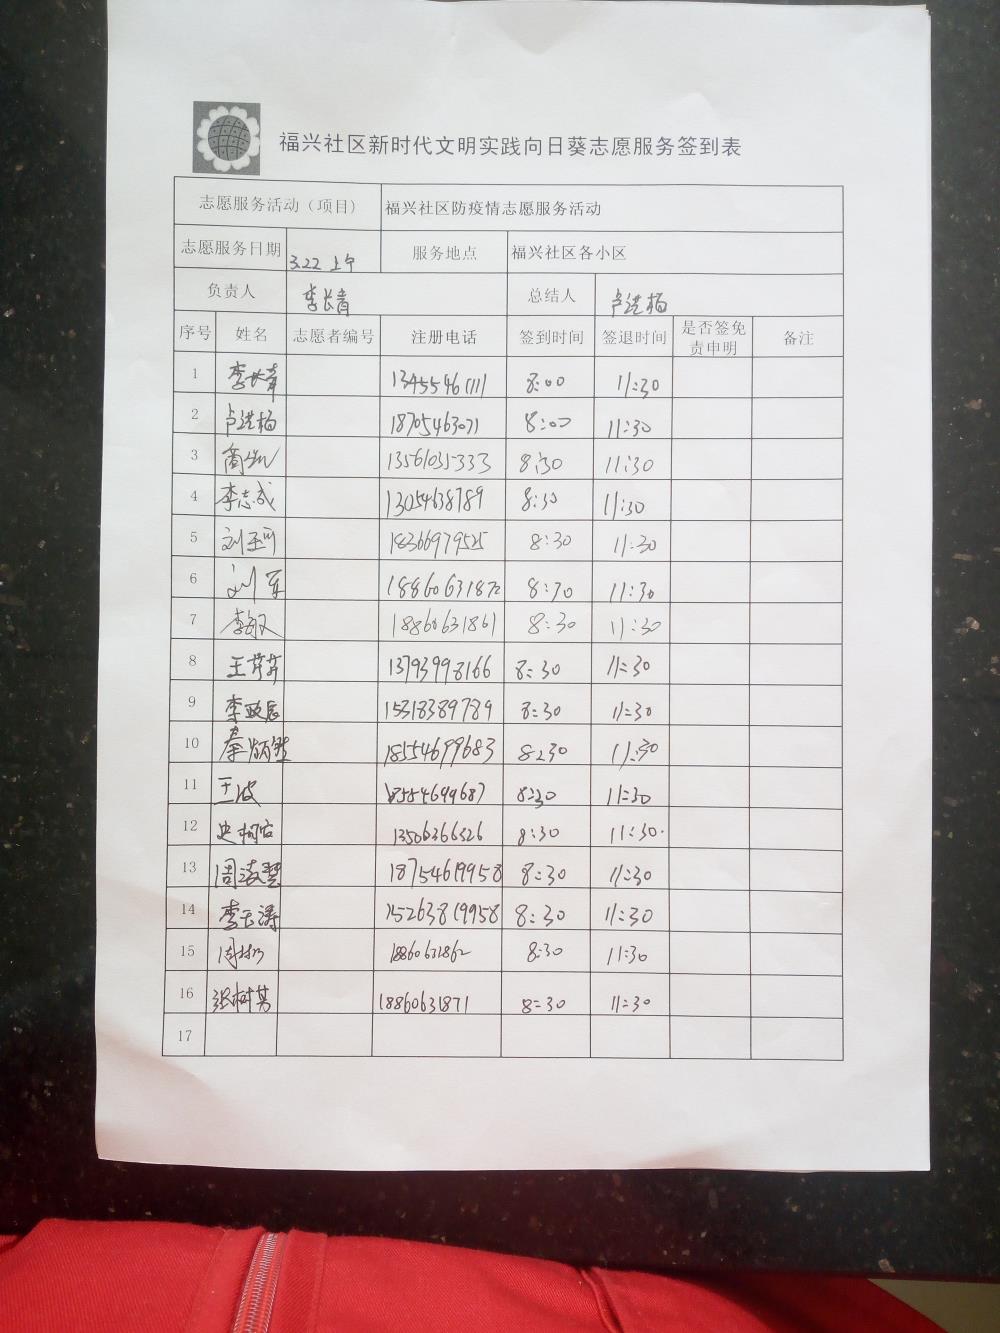 福兴社区新时代文明实践向日葵志愿服务签到表
志愿服务活动（项目） 福兴社区防疫情志愿服务活动
志愿服务日期 3.22 上午 服务地点 福兴社区各小区
负责人 李长青 总结人 卢洪杨
序号 姓名 志愿者编号 注册电话 签到时间 签退时间 是否签免责申明 备注
1 李长青 13455461111 8:00 11:30
2 卢洪杨 18705463071 8:00 11:30
3 13561035333 8:30 11:30
4 李志成 13054638789 8:30 11:30
5 18366979525 8:30 11:30
6 刘军 18860631872 8:30 11:30
7 李敏 18860631861 8:30 11:30
8 王芹芹 13793998166 8:30 11:30
9 李政辰 15318389789 8:30 11:30
10 18554699683 8:30 11:30
11 王波 18554699687 8:30 11:30
12 13506366526 8:30 11:30
13 周凌慧 18754619958 8:30 11:30
14 李云涛 15263819958 8:30 11:30
15 18860631862 8:30 11:30
16 张树芳 18860631871 8:30 11:30
17